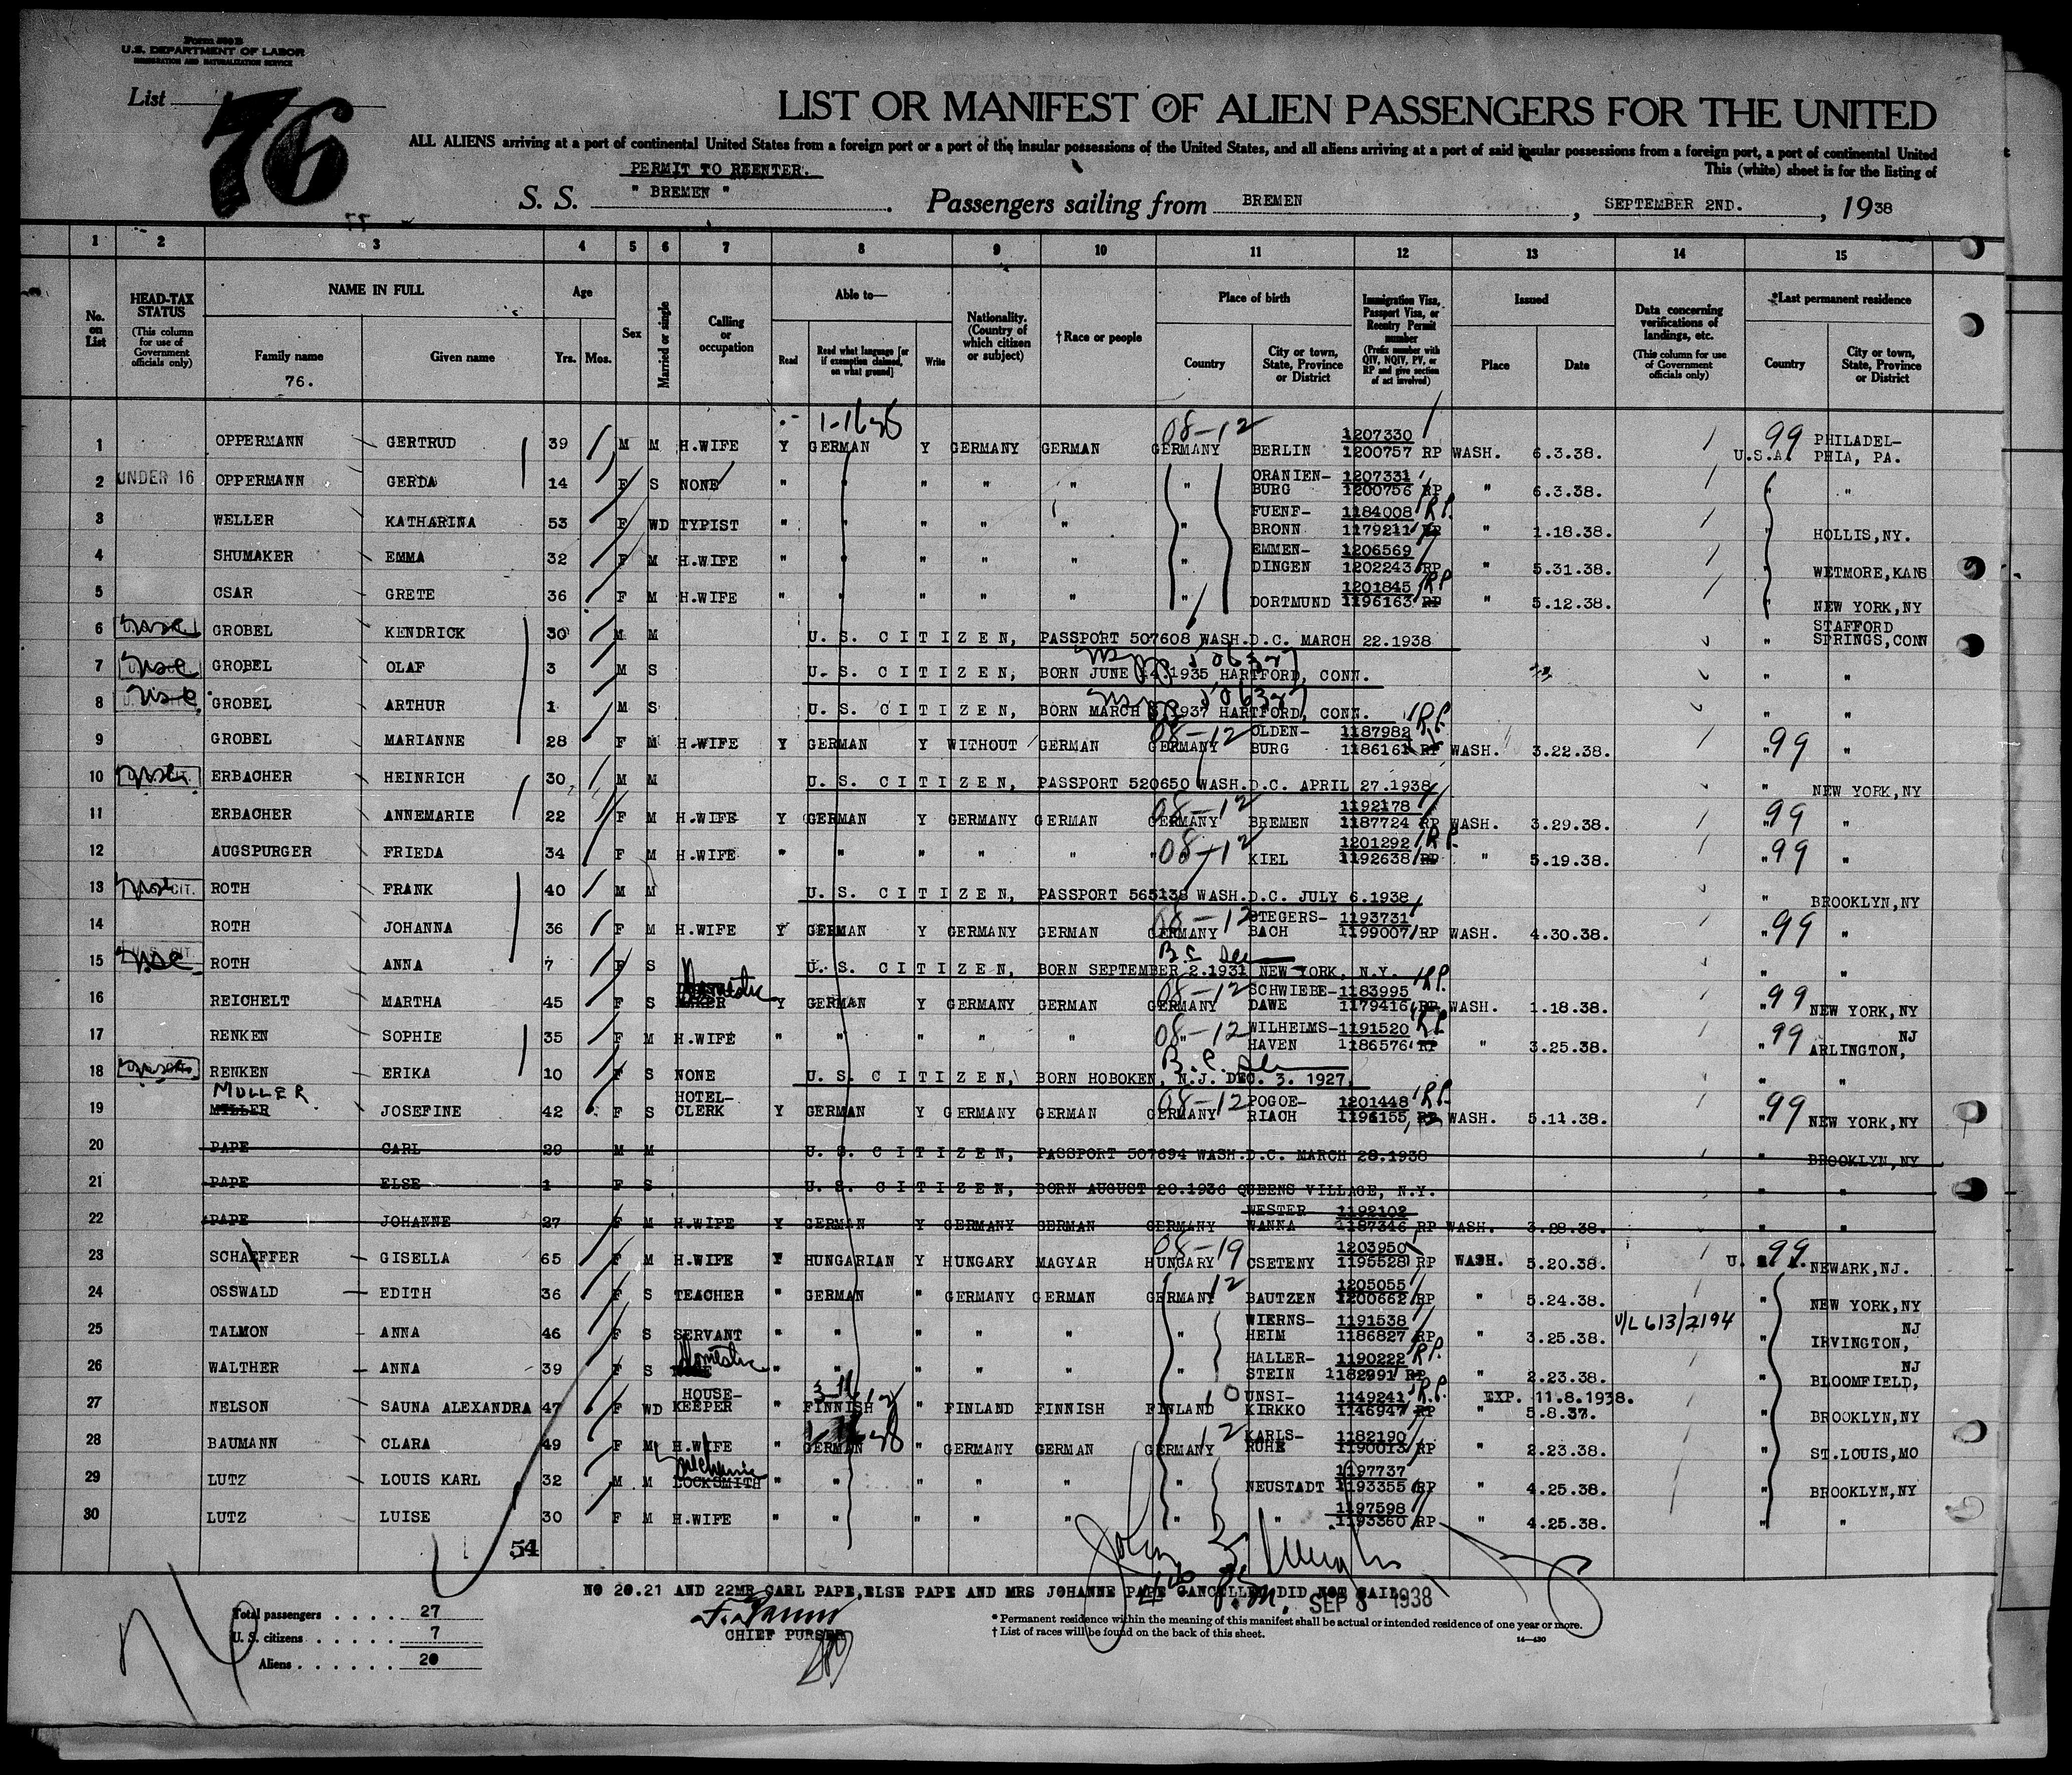 Form 500 B
U.S. DEPARTMENT OF LABOR
IMMIGRATION AND NATURALIZATION SERVICE
List 76
LIST OR MANIFEST OF ALIEN PASSENGERS FOR THE UNITED
ALL ALIENS arriving at a port of continental United States from a foreign port or a port of the insular possessions of the United States, and all aliens arriving at a port of said insular possessions from a foreign port, a port of continental United
This (white) sheet is for the listing of
PERMIT TO REENTER.
S. S. "BREMEN". Passengers sailing from BREMEN, SEPTEMBER 2ND., 1938
1 2 3 4 5 6 7 8 9 10 11 12 13 14 15
No. on List
HEAD-TAX STATUS (This column for use of Government officials only)
NAME IN FULL Family name Given name
76.
Age Yrs. Mos.
Sex
Married or single
Calling or occupation
Able to— Read Read what language [or if exemption claimed, on what ground] Write
Nationality. (Country of which citizen or subject)
†Race or people
Place of birth Country City or town, State, Province or District
Immigration Visa, Passport Visa, or Reentry Permit number (Prefix number with QIV, NQIV, PV, or RP and give section of act involved)
Issued Place Date
Data concerning verifications of landings, etc. (This column for use of Government officials only)
*Last permanent residence Country City or town, State, Province or District
1-1638
1 OPPERMANN GERTRUD 39 M M H.WIFE Y GERMAN Y GERMANY GERMAN 08-12 GERMANY BERLIN 1207330 1200757 RP WASH. 6.3.38. 99 U.S.A. PHILADEL- PHIA, PA.
2 UNDER 16 OPPERMANN GERDA 14 F S NONE " " " " " " ORANIEN- BURG 1207331 1200756 RP " 6.3.38. " "
3 WELLER KATHARINA 53 F WD TYPIST " " " " " " FUENF- BRONN 1184008 RP. 1179211 RP " 1.18.38. " HOLLIS,NY.
4 SHUMAKER EMMA 32 F M H.WIFE " " " " " " EMMEN- DINGEN 1206569 1202243 RP " 5.31.38. " WETMORE,KANS
5 CSAR GRETE 36 F M H.WIFE " " " " " " DORTMUND 1201845 RP 1196163 RP " 5.12.38. " NEW YORK,NY
6 GROBEL KENDRICK 30 M M U. S. CITIZEN, PASSPORT 507608 WASH.D.C. MARCH 22.1938 " STAFFORD SPRINGS,CONN
7 GROBEL OLAF 3 M S U. S. CITIZEN, BORN JUNE 14.1935 HARTFORD, CONN. " "
8 GROBEL ARTHUR 1 M S U. S. CITIZEN, BORN MARCH 1937 HARTFORD, CONN. " "
9 GROBEL MARIANNE 28 F M H.WIFE Y GERMAN Y WITHOUT GERMAN 08-12 GERMANY OLDEN- BURG 1187982 RP. 1186161 RP WASH. 3.22.38. " 99 "
10 ERBACHER HEINRICH 30 M M U. S. CITIZEN, PASSPORT 520650 WASH.D.C. APRIL 27.1938 " NEW YORK,NY
11 ERBACHER ANNEMARIE 22 F M H.WIFE Y GERMAN Y GERMANY GERMAN 08-12 GERMANY BREMEN 1192178 1187724 RP WASH. 3.29.38. " 99 "
12 AUGSPURGER FRIEDA 34 F M H.WIFE " " " " " 08-12 KIEL 1201292 RP. 1192638 RP " 5.19.38. " 99 "
13 CIT. ROTH FRANK 40 M M U. S. CITIZEN, PASSPORT 565138 WASH.D.C. JULY 6.1938 " BROOKLYN,NY
14 ROTH JOHANNA 36 F M H.WIFE Y GERMAN Y GERMANY GERMAN 08-12 GERMANY STEGERS- BACH 1193731 1199007 RP WASH. 4.30.38. " 99 "
15 U.S. CIT. ROTH ANNA 7 F S U. S. CITIZEN, BORN SEPTEMBER 2.1931 NEW YORK, N.Y. " "
16 REICHELT MARTHA 45 F S Domestic Y GERMAN Y GERMANY GERMAN 08-12 GERMANY SCHWIEBE- DAWE 1183995 RP. 1179416 RP WASH. 1.18.38. " 99 NEW YORK,NY
17 RENKEN SOPHIE 35 F M H.WIFE " " " " " 08-12 WILHELMS- HAVEN 1191520 RP 1186576 RP " 3.25.38. " 99 ARLINGTON, NJ
18 RENKEN ERIKA 10 F S NONE U. S. CITIZEN, BORN HOBOKEN, N.J. DEC. 3. 1927. " "
MULLER
19 MILLER JOSEFINE 42 F S HOTEL- CLERK Y GERMAN Y GERMANY GERMAN 08-12 GERMANY POGOE- RIACH 1201448 RP. 1196155 RP WASH. 5.11.38. " 99 NEW YORK,NY
20 PAPE CARL 29 M M U. S. CITIZEN, PASSPORT 507694 WASH.D.C. MARCH 28.1938 " BROOKLYN,NY
21 PAPE ELSE 1 F S U. S. CITIZEN, BORN AUGUST 20.1936 QUEENS VILLAGE, N.Y. " "
22 PAPE JOHANNE 27 F M H.WIFE Y GERMAN Y GERMANY GERMAN GERMANY WESTER WANNA 1192102 1187346 RP WASH. 3.28.38. " "
23 SCHAEFFER GISELLA 65 F M H.WIFE Y HUNGARIAN Y HUNGARY MAGYAR 08-19 HUNGARY CSETENY 1203950 1195528 RP WASH. 5.20.38. 99 NEWARK,NJ.
24 OSSWALD EDITH 36 F S TEACHER " GERMAN " GERMANY GERMAN GERMANY 12 BAUTZEN 1205055 1200662 RP " 5.24.38. " NEW YORK,NY
25 TALMON ANNA 46 F S SERVANT " " " " " " WIERNS- HEIM 1191538 1186827 RP " 3.25.38. V/L 613/2194 " IRVINGTON, NJ
26 WALTHER ANNA 39 F S Domestic " " " " " " HALLER- STEIN 1190222 RP. 1182991 RP " 2.23.38. " BLOOMFIELD, NJ
27 NELSON SAUNA ALEXANDRA 47 F WD HOUSE- KEEPER " FINNISH " FINLAND FINNISH FINLAND 10 UNSI- KIRKKO 1149241 R.P. 1146947 RP EXP. 11.8.1938. " 5.8.37. " BROOKLYN,NY
28 BAUMANN CLARA 49 F M H.WIFE " GERMAN " GERMANY GERMAN GERMANY 12 KARLS- RUHE 1182190 1190013 RP " 2.23.38. " ST.LOUIS,MO
29 LUTZ LOUIS KARL 32 M M Mechanic LOCKSMITH " " " " " " NEUSTADT 1197737 1193355 RP " 4.25.38. " BROOKLYN,NY
30 LUTZ LUISE 30 F M H.WIFE " " " " " " " 1197598 1193360 RP " 4.25.38. " "
54
NO 20.21 AND 22MR CARL PAPE,ELSE PAPE AND MRS JOHANNE PAPE CANCELLED DID NOT SAIL
SEP 8 1938
CHIEF PURSER
Total passengers . . . . 27
U. S. citizens . . . . . 7
Aliens . . . . . . 20
* Permanent residence within the meaning of this manifest shall be actual or intended residence of one year or more.
† List of races will be found on the back of this sheet.
14—430